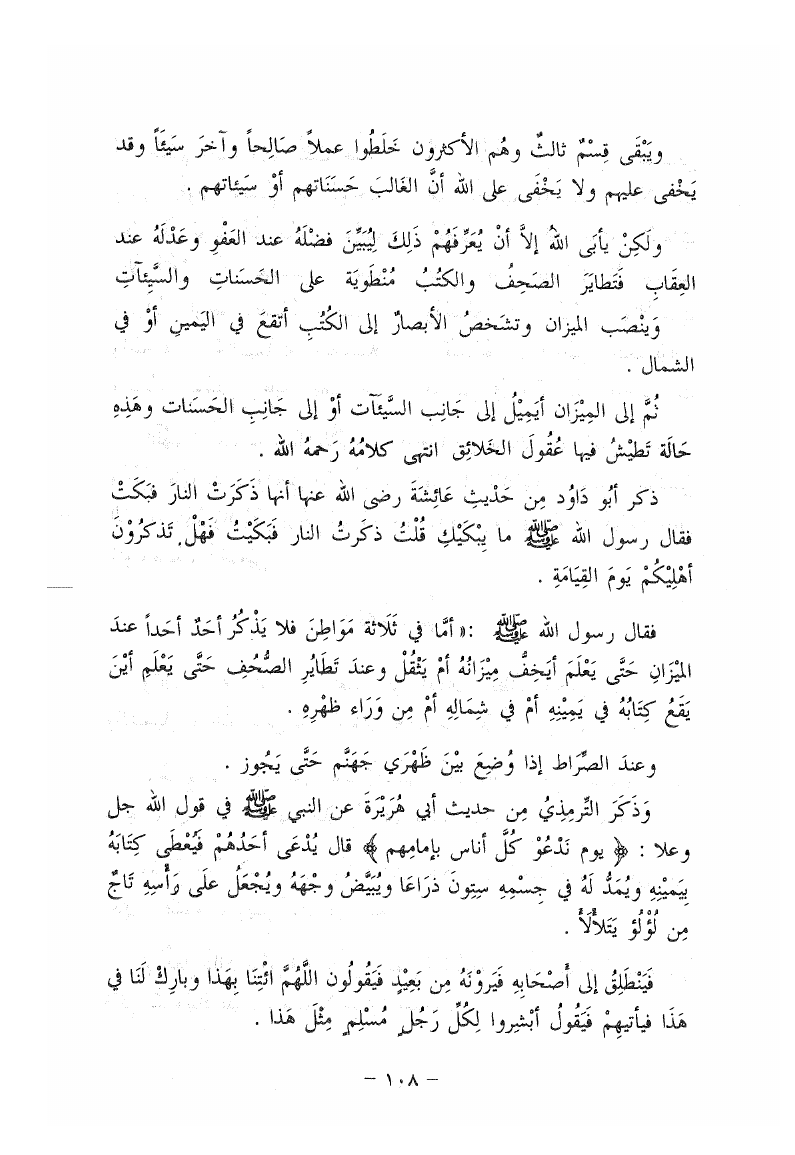 ويَبْقَى قِسْمٌ ثالثٌ وهُم الأكثرون خَلَطُوا عملاً صَالِحاً وآخرَ سَيئَاً وقد
يَخْفى عليهم ولا يَخْفَى على الله أنَّ الغَالبَ حَسَنَاتهم أوْ سَيئاتهم .
ولَكِنْ يأبَى اللهُ إلاَّ أنْ يُعَرِّفَهُمْ ذَلِكَ لِيُبَيِّنَ فضْلَهُ عند العَفْوِ وعَدْلَهُ عند
العِقَابِ فَتَطايَر الصَحِفُ والكتُبُ مُنْطَويَة على الحَسَناتِ والسَّيِّئآتِ
وَيَنْصَب الميزان وتشخَصُ الأبصارُ إلى الكُتُبِ أتقعَ في اليَمينِ أوْ في
الشمال .
ثُمَّ إلى المِيْزَان أيَمِيْلُ إلى جَانِب السيَّئآت أوْ إلى جَانِبِ الحَسَنات وهَذِهِ
حَالَة تَطيْشُ فيها عُقُولَ الخَلائِق انتهى كلامُهُ رَحمهُ الله .
ذكر أبُو دَاوُد مِن حَدْيثِ عَائِشَةَ رضى الله عنها أنها ذَكَرَتْ النارَ فبَكَتْ
فقال رسول الله ﷺ ما يِبْكيْكِ قُلْتُ ذكَرتُ النار فَبَكَيْتُ فَهْلْ تَذكرُوْنَ
أهْلِيْكُمْ يَومَ القِيَامَةِ .
فقال رسول الله ﷺ :« أمَّا في ثَلَاثة مَوَاطِنَ فلا يَذْكُرُ أحَدٌ أحَداً عندَ
الميْزَانِ حَتَّى يَعْلَمَ أيَخِفُّ مِيْزَانُهُ أمْ يَثْقُلْ وعندَ تَطايُرِ الصُّحُفِ حَتَّى يَعْلَمِ أيْنَ
يَقَعُ كِتَابُهُ في يَمِيْنِهِ أمْ في شِمَالِهِ أمْ مِن وَرَاء ظهْرِهِ .
وعندَ الصِّرَاط إذا وُضِعَ بيْنَ ظَهْرَي جَهَنَّم حَتَّى يَجُوز .
وَذَكَرَ التِّرمِذيُ مِن حديث أبي هُرَيْرَةَ عن النبي ﷺ في قول الله جل
وعلا : ﴿ يوم نَدْعُوْ كُلَّ أناس بإمامِهم ﴾ قال يُدْعَى أحَدُهُمْ فَيُعْطَى كِتَابَهُ
بِيَمْيْنِهِ ويُمَدُّ لَهُ في جِسْمِهِ سِتِونَ ذرَاعَا ويُبَيَّضُ وجْهَهُ ويُجْعَلُ علَى رَأْسِهِ تَاجٌ
مِن لُؤْلُؤ يَتَلأْلَأُ .
فَيَنْطَلِقُ إلى أَصْحَابِهِ فَيَرونَهُ مِن بَعِيْدٍ فَيَقُولُون اللَّهُمَّ ائْتِنَا بِهَذَا وبارِكْ لَنَا في
هَذَا فيأتيهِمْ فَيَقُولُ أبْشِروا لِكُلِّ رَجُلٍ مُسْلِمٍ مِثْلَ هَذا .
– ١٠٨ –